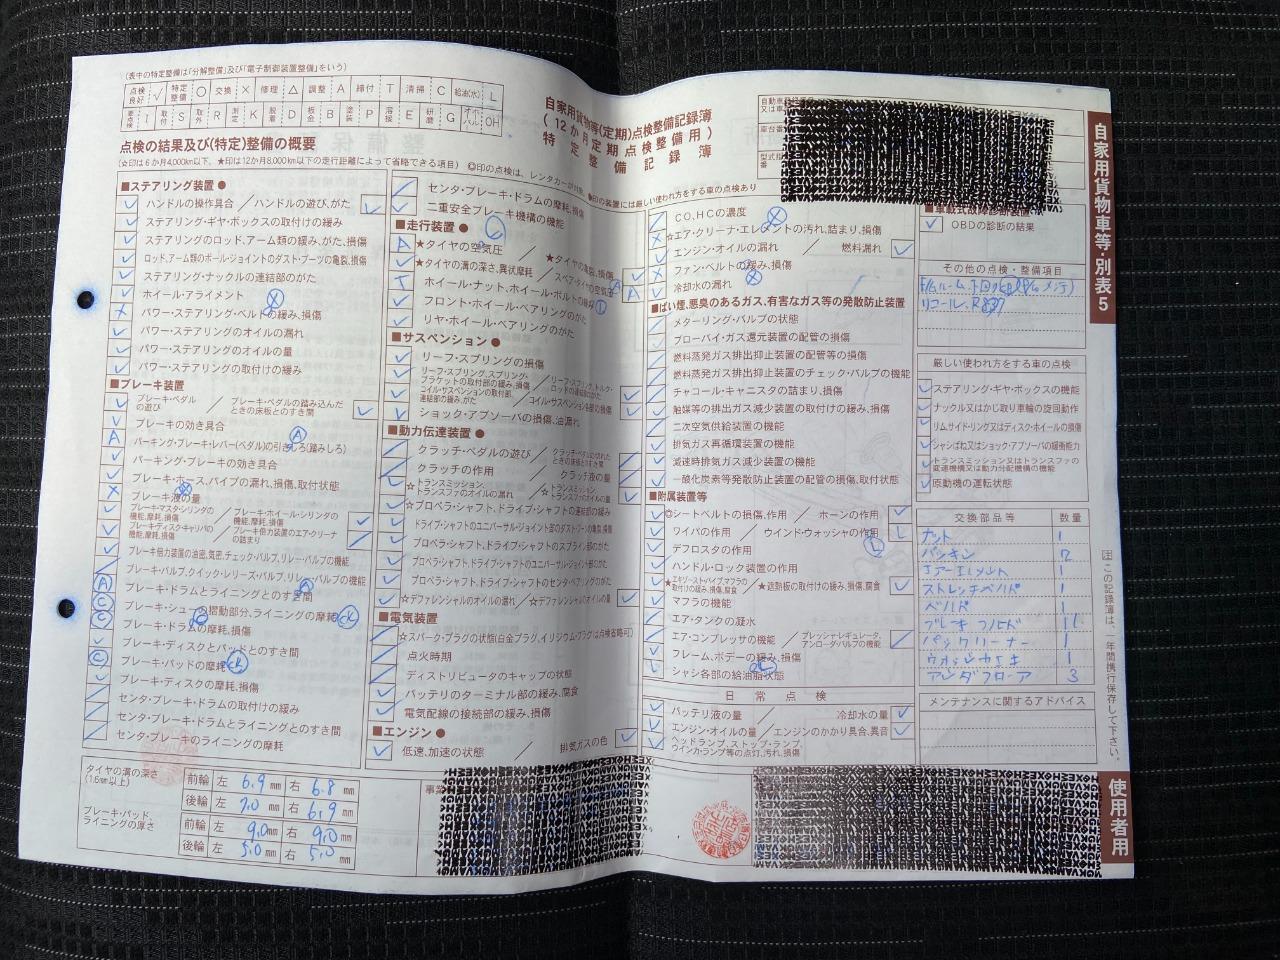 (表中の特定整備は「分解整備」及び「電子制御装置整備」をいう)
点検良好 レ 特定整備 ○ 交換 × 修理 △ 調整 A 締付 T 清掃 C 給油(水) L
要点検 I 取付 S 取外 R 測定 K 脱着 D 板金 B 塗装 P 溶接 E 研磨 G オーバーホール OH
自家用貨物等(定期)点検整備記録簿
(12か月定期点検整備用)
特定整備記録簿
点検の結果及び(特定)整備の概要
(☆印は6か月4,000km以下、★印は12か月8,000km以下の走行距離によって省略できる項目) ◎印の点検は、レンタカーが対象。●印の装置には厳しい使われ方をする車の点検あり
■ステアリング装置●
ハンドルの操作具合 / ハンドルの遊び、がた
ステアリング・ギヤ・ボックスの取付けの緩み
ステアリングのロッド、アーム類の緩み、がた、損傷
ロッド、アーム類のボール・ジョイントのダスト・ブーツの亀裂、損傷
ステアリング・ナックルの連結部のがた
ホイール・アライメント
パワー・ステアリング・ベルトの緩み、損傷
パワー・ステアリングのオイルの漏れ
パワー・ステアリングのオイルの量
パワー・ステアリングの取付けの緩み
■ブレーキ装置
ブレーキ・ペダルの遊び / ブレーキ・ペダルの踏み込んだときの床板とのすき間
ブレーキの効き具合
パーキング・ブレーキ・レバー(ペダル)の引きしろ(踏みしろ)
パーキング・ブレーキの効き具合
ブレーキ・ホース、パイプの漏れ、損傷、取付状態
ブレーキ液の量
ブレーキ・マスタ・シリンダの機能、摩耗、損傷 / ブレーキ・ホイール・シリンダの機能、摩耗、損傷
ブレーキ・ディスク・キャリパの機能、摩耗、損傷 / ブレーキ倍力装置のエア・クリーナの詰まり
ブレーキ倍力装置の油密、気密、チェック・バルブ、リレー・バルブの機能
ブレーキ・バルブ、クイック・レリーズ・バルブ、リレー・バルブの機能
ブレーキ・ドラムとライニングとのすき間
ブレーキ・シューの摺動部分、ライニングの摩耗
ブレーキ・ドラムの摩耗、損傷
ブレーキ・ディスクとパッドとのすき間
ブレーキ・パッドの摩耗
ブレーキ・ディスクの摩耗、損傷
センタ・ブレーキ・ドラムの取付けの緩み
センタ・ブレーキ・ドラムとライニングとのすき間
センタ・ブレーキのライニングの摩耗
タイヤの溝の深さ(1.6mm以上)
前輪 左 6.9 mm 右 6.8 mm
後輪 左 7.0 mm 右 6.9 mm
ブレーキ・パッド、ライニングの厚さ
前輪 左 9.0 mm 右 9.0 mm
後輪 左 5.0 mm 右 5.0 mm
センタ・ブレーキ・ドラムの摩耗、損傷
二重安全ブレーキ機構の機能
■走行装置●
★タイヤの空気圧 / ★タイヤの亀裂、損傷
★タイヤの溝の深さ、異状摩耗 / スペア・タイヤの空気圧
ホイール・ナット、ホイール・ボルトの緩み
フロント・ホイール・ベアリングのがた
リヤ・ホイール・ベアリングのがた
■サスペンション●
リーフ・スプリングの損傷
リーフ・スプリング、スプリング・ブラケットの取付部の緩み、損傷 / リーフ・スプリング、トルク・ロッドの連結部のがた
コイル・サスペンションの取付部、連結部の緩み、がた / コイル・サスペンション各部の損傷
ショック・アブソーバの損傷、油漏れ
■動力伝達装置●
クラッチ・ペダルの遊び / クラッチ・ペダルの切れたときの床板とのすき間
クラッチの作用 / クラッチ液の量
☆トランスミッション、トランスファのオイルの漏れ / ☆トランスミッション、トランスファのオイルの量
☆プロペラ・シャフト、ドライブ・シャフトの連結部の緩み
ドライブ・シャフトのユニバーサル・ジョイント部のダスト・ブーツの亀裂、損傷
プロペラ・シャフト、ドライブ・シャフトのスプライン部のがた
プロペラ・シャフト、ドライブ・シャフトのユニバーサル・ジョイントのがた
プロペラ・シャフト、ドライブ・シャフトのセンタ・ベアリングのがた
☆デファレンシャルのオイルの漏れ / ☆デファレンシャルのオイルの量
■電気装置
☆スパーク・プラグの状態(白金プラグ、イリジウム・プラグは点検省略可)
点火時期
ディストリビュータのキャップの状態
バッテリのターミナル部の緩み、腐食
電気配線の接続部の緩み、損傷
■エンジン●
低速、加速の状態 / 排気ガスの色
事業
CO、HCの濃度
☆エア・クリーナ・エレメントの汚れ、詰まり、損傷
エンジン・オイルの漏れ / 燃料漏れ
ファン・ベルトの緩み、損傷
冷却水の漏れ
■ばい煙、悪臭のあるガス、有害なガス等の発散防止装置
メターリング・バルブの状態
ブローバイ・ガス還元装置の配管の損傷
燃料蒸発ガス排出抑止装置の配管等の損傷
燃料蒸発ガス排出抑止装置のチェック・バルブの機能
チャコール・キャニスタの詰まり、損傷
触媒等の排出ガス減少装置の取付けの緩み、損傷
二次空気供給装置の機能
排気ガス再循環装置の機能
減速時排気ガス減少装置の機能
一酸化炭素等発散防止装置の配管の損傷、取付状態
■附属装置等
◎シートベルトの損傷、作用 / ホーンの作用
ワイパの作用 / ウインド・ウォッシャの作用
デフロスタの作用
ハンドル・ロック装置の作用
★エキゾースト・パイプ、マフラの取付けの緩み、損傷、腐食 / ★遮熱板の取付けの緩み、損傷、腐食
マフラの機能
エア・タンクの凝水
エア・コンプレッサの機能 / プレッシャ・レギュレータ、アンローダ・バルブの機能
フレーム、ボデーの緩み、損傷
シャシ各部の給油脂状態
日常点検
バッテリ液の量 / 冷却水の量
エンジン・オイルの量 / エンジンのかかり具合、異音
ヘッドランプ、ストップ・ランプ、ウインカ・ランプ等の点灯、汚れ、損傷
■車載式故障診断装置
OBDの診断の結果
その他の点検・整備項目
厳しい使われ方をする車の点検
ステアリング・ギヤ・ボックスの機能
ナックル又はかじ取り車輪の旋回動作
リムサイドリング又はディスク・ホイールの損傷
シャシばね又はショック・アブソーバの緩衝能力
トランスミッション又はトランスファの変速機構又は動力分配機構の機能
原動機の運転状態
交換部品等 数量
ナット 1
パッキン 2
エアーエレメント 1
ストレッチベルト 1
ベルト 1
ブレーキフルード 1L
パーツクリーナー 1
ウォッシャエキ 1
アンダフロアー 3
メンテナンスに関するアドバイス
自家用貨物車等・別表5
注 この記録簿は、一年間携行保存して下さい。
使用者用